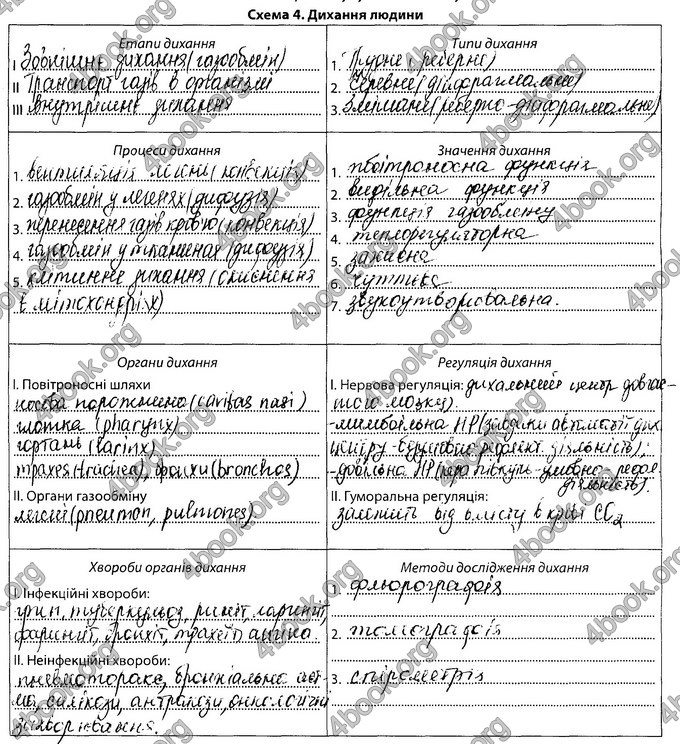 Схема 4. Дихання людини
Етапи дихання
I Зовнішнє дихання (газообмін)
II Транспорт газів в організмі
III внутрішнє дихання
Типи дихання
1. Грудне (реберне)
2. Черевне (діафрагмальне)
3. Змішане (реберно-діафрагмальне)
Процеси дихання
1. вентиляція легень (конвекція)
2. газообмін у легенях (дифузія)
3. перенесення газів кров'ю (конвекція)
4. газообмін у тканинах (дифузія)
5. клітинне дихання (окиснення
в мітохондріях)
Значення дихання
1. повітроносна функція
2. видільна функція
3. функція газообміну
4. терморегуляторна
5. захисна
6. чуттєва
7. звукоутворювальна.
Органи дихання
I. Повітроносні шляхи
носова порожнина (cavitas nasi)
глотка (pharynx)
гортань (larinx)
трахея (trachea), бронхи (bronchos)
II. Органи газообміну
легені (pneumon, pulmones)
Регуляція дихання
I. Нервова регуляція: дихальний центр довгас-
того мозку).
-мимовільна НР (завдяки автоматії дих.
центру-безумовно рефлект. діяльність);
-довільна НР (кора півкуль-умовно-рефл.
діяльність).
II. Гуморальна регуляція:
залежить від вмісту в крові CO₂
Хвороби органів дихання
I. Інфекційні хвороби:
грип, туберкульоз, риніт, ларингіт,
фарингіт, бронхіт, трахеїт, ангіна.
II. Неінфекційні хвороби:
пневмоторакс, бронхіальна аст-
ма, силікози, антракози, онкологічні
захворювання.
Методи дослідження дихання
1. флюорографія
2. томографія
3. спірометрія
4book.org